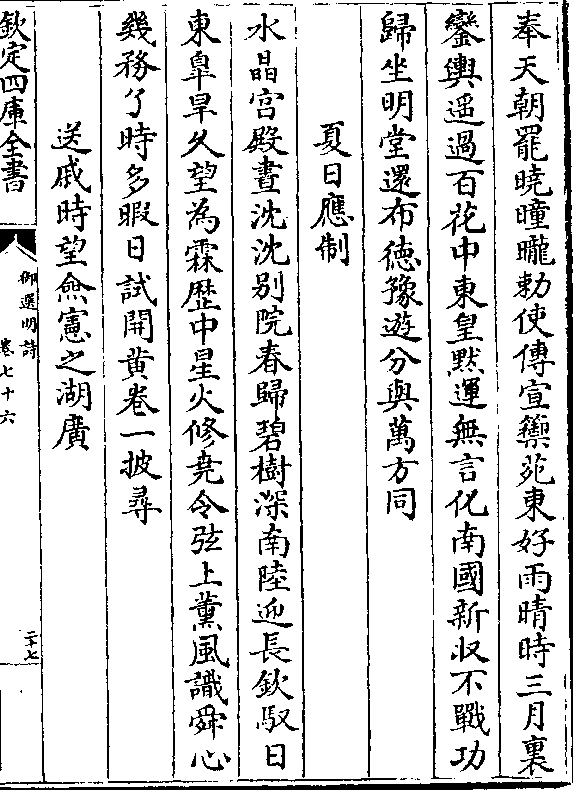 奉天朝罷曉曈曨勅使傳宣籞苑東好雨晴時三月裏
鑾輿遥過百花中東皇黙運無言化南國新收不戰功
歸坐明堂還布徳豫遊分與萬方同
夏日應制
水晶宫殿晝沈沈别院春歸碧樹深南陸迎長欽馭日
東臯旱乆望為霖歴中星火修堯令弦上薫風識舜心
幾務了時多暇日試開黄卷一披尋
送戚時望僉憲之湖廣
欽定四庫全書
御選明詩
卷七十六
二十七